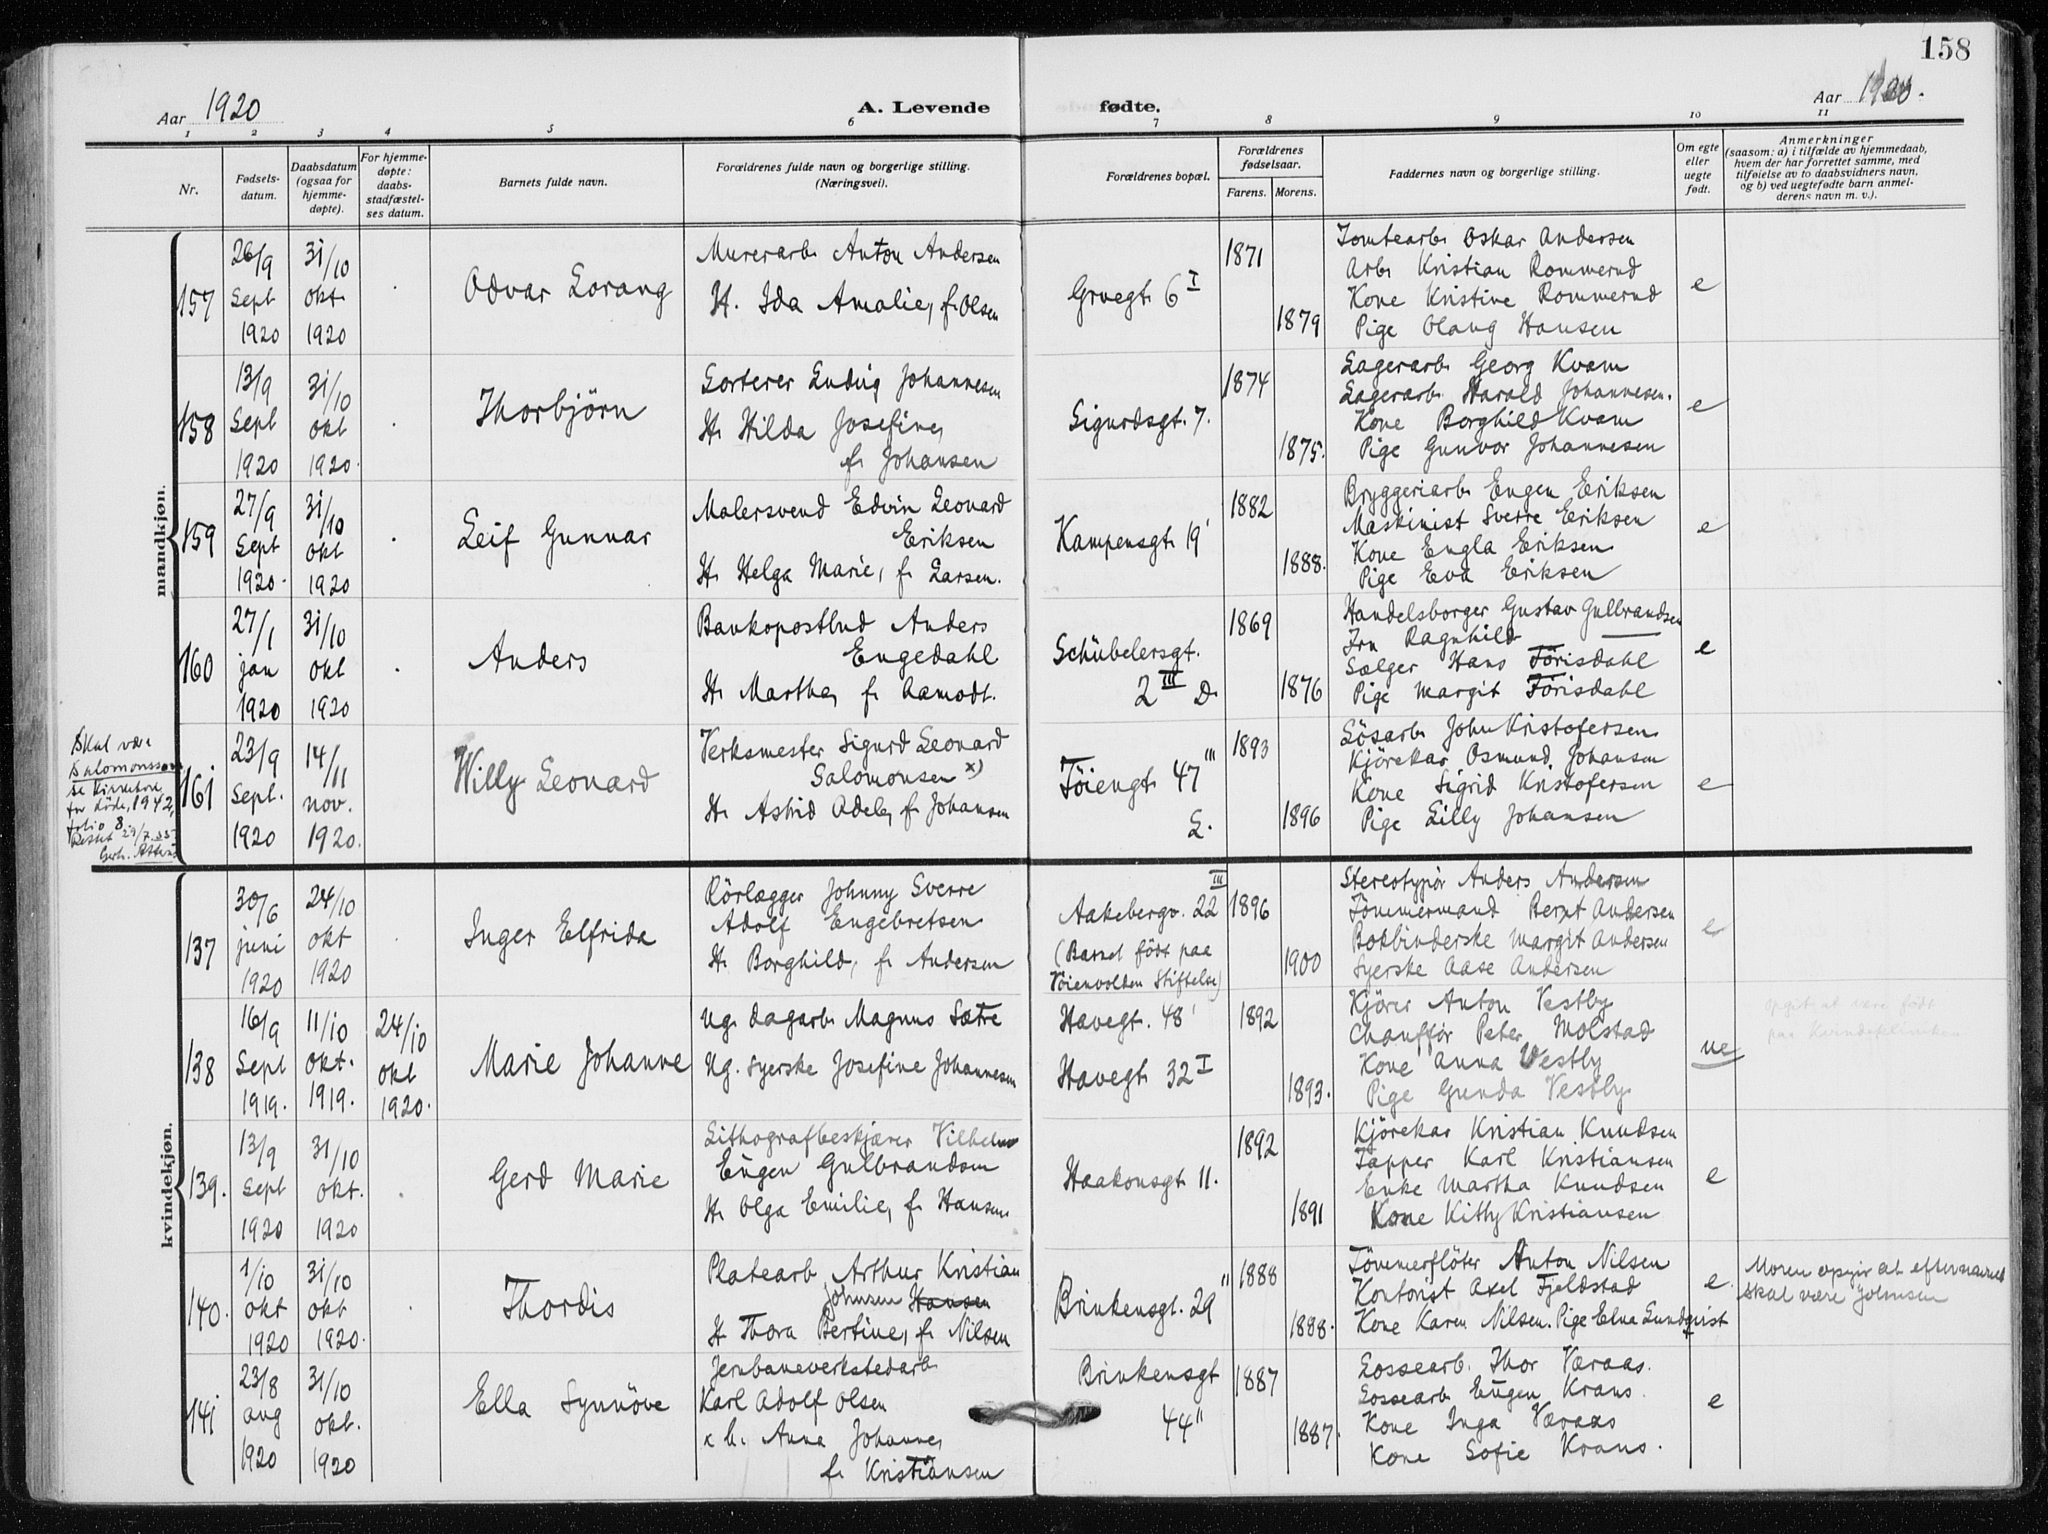 158
Aar 1920
A. Levende
fødte.
Aar 1920.
1 2 3 4 5 6 7 8 9 10 11
Nr.
Fødsels-
datum.
Daabsdatum
(ogsaa for
hjemme-
døpte).
For hjemme-
døpte:
daabs-
stadfæstel-
ses datum.
Barnets fulde navn.
Forældrenes fulde navn og borgerlige stilling.
(Næringsvei).
Forældrenes bopæl.
Forældrenes
fødselsaar.
Farens. Morens.
Faddernes navn og borgerlige stilling.
Om egte
eller
uegte
født.
Anmerkninger
(saasom: a) i tilfælde av hjemmedaab,
hvem der har forrettet samme, med
tilføielse av to daabsvidners navn,
og b) ved uegtefødte barn anmel-
derens navn m. v.).
mandkjøn.
157
26/9
Sept
1920
31/10
okt
1920
Odvar Lorang
Murerarb. Anton Andersen
H. Ida Amalie, f. Olsen
Gruegt. 6 I
1871
1879
Tomtearb. Oskar Andersen
Arb. Kristian Rommerud
Kone Kristine Rommerud
Pige Olaug Hansen
e
158
13/9
Sept
1920
31/10
okt
1920.
Thorbjörn
Sorterer Ludvig Johannesen
H. Hilda Josefine,
f. Johansen
Sigurdsgt. 7.
1874
1875.
Lagerarb. Georg Kvam
Lagerarb. Harald Johannesen.
Kone Borghild Kvam
Pige Gunvor Johannesen
e
159
27/9
Sept
1920.
31/10
okt
1920
Leif Gunnar
Malersvend Edvin Leonard
Eriksen
H. Helga Marie, f. Larsen.
Kampensgt. 19 '
1882
1888.
Bryggeriarb. Eugen Eriksen
Maskinist Sverre Eriksen
Kone Engla Eriksen
Pige Eva Eriksen
e
160
27/1
jan
1920
31/10
okt
1920
Anders
Bankopostbud Anders
Engedahl
H. Marthe, f. Aamodt.
Schübelersgt.
2 III D.
1869
1876
Handelsborger Gustav Gulbrandsen
Fru Ragnhild
Sælger Hans Törisdahl
Pige Margit Törisdahl
e
Skal være
Salomonsson
se Kirkebok
for döde, 1942,
folio 8.
161
23/9
Sept.
1920
14/11
nov.
1920.
Willy Leonard
Verksmester Sigurd Leonard
Salomonsen x)
H. Astrid Adele, f. Johansen
Töiengt. 47 '''
L.
1893
1896
Lösarb. John Kristofersen
Kjörekar Osmund Johansen
Kone Sigrid Kristofersen
Pige Lilly Johansen
e
kvindekjøn.
137
30/6
juni
1920
24/10
okt
1920
Inger Elfrida
Rörlægger Johnny Sverre
Adolf Engebretsen
H. Borghild, f. Andersen
Aakebergv. 22 III
(Barnet födt paa
Töienvolden Stiftelse)
1896
1900
Stereotypör Anders Andersen
Tömmermand Bernt Andersen
Bokbinderske Margit Andersen
Syerske Aase Andersen
e
138
16/9
Sept
1919.
11/10
okt.
1919.
24/10
okt
1920.
Marie Johanne
Ug. dagarb. Magnus Sætre
Ug. syerske Josefine Johannesen
Havegt. 48 '
Havegt. 32 I
1892
1893.
Kjörer Anton Vestby
Chaufför Peter Molstad
Kone Anna Vestby
Pige Gunda Vestby
ue
opgit at være födt
paa Kvindeklinikken
139.
13/9
Sept
1920
31/10
okt.
1920
Gerd Marie
Lithografbeskjærer Vilhelm
Eugen Gulbrandsen
H. Olga Emilie, f. Hansen
Haakonsgt. 11.
1892
1891
Kjörekar Kristian Knudsen
Tapper Karl Kristiansen
Enke Martha Knudsen
Kone Kitty Kristiansen
e
140.
1/10
okt
1920
31/10
okt
1920.
Thordis
Platearb. Arthur Kristian
Johnsen Hansen
H. Thora Bertine, f. Nilsen
Brinkensgt. 29 "
1888
1888.
Tömmerflöter Anton Nilsen
Kontorist Axel Fjeldstad
Kone Karen Nilsen. Pige Elna Lundqvist
e.
Moren opgir at efternavnet
skal være Johnsen
141
23/8
aug
1920
31/10
okt.
1920
Ella Synnöve
Jernbaneverkstedarb.
Karl Adolf Olsen
x h. Anna Johanne,
f. Kristiansen
Brinkensgt
44 "
1887
1887.
Lossearb. Thor Væraas.
Lossearb. Eugen Krans.
Kone Inga Væraas
Kone Sofie Krans.
e